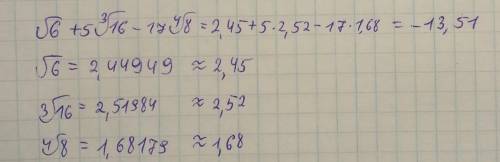 √6 + 5∛16 - 17∜8 = 2,45 + 5·2,52 - 17·1,68 = -13,51
√6 = 2,44949 ≈ 2,45
3√16 = 2,51984 ≈ 2,52
4√8 = 1,68179 ≈ 1,68